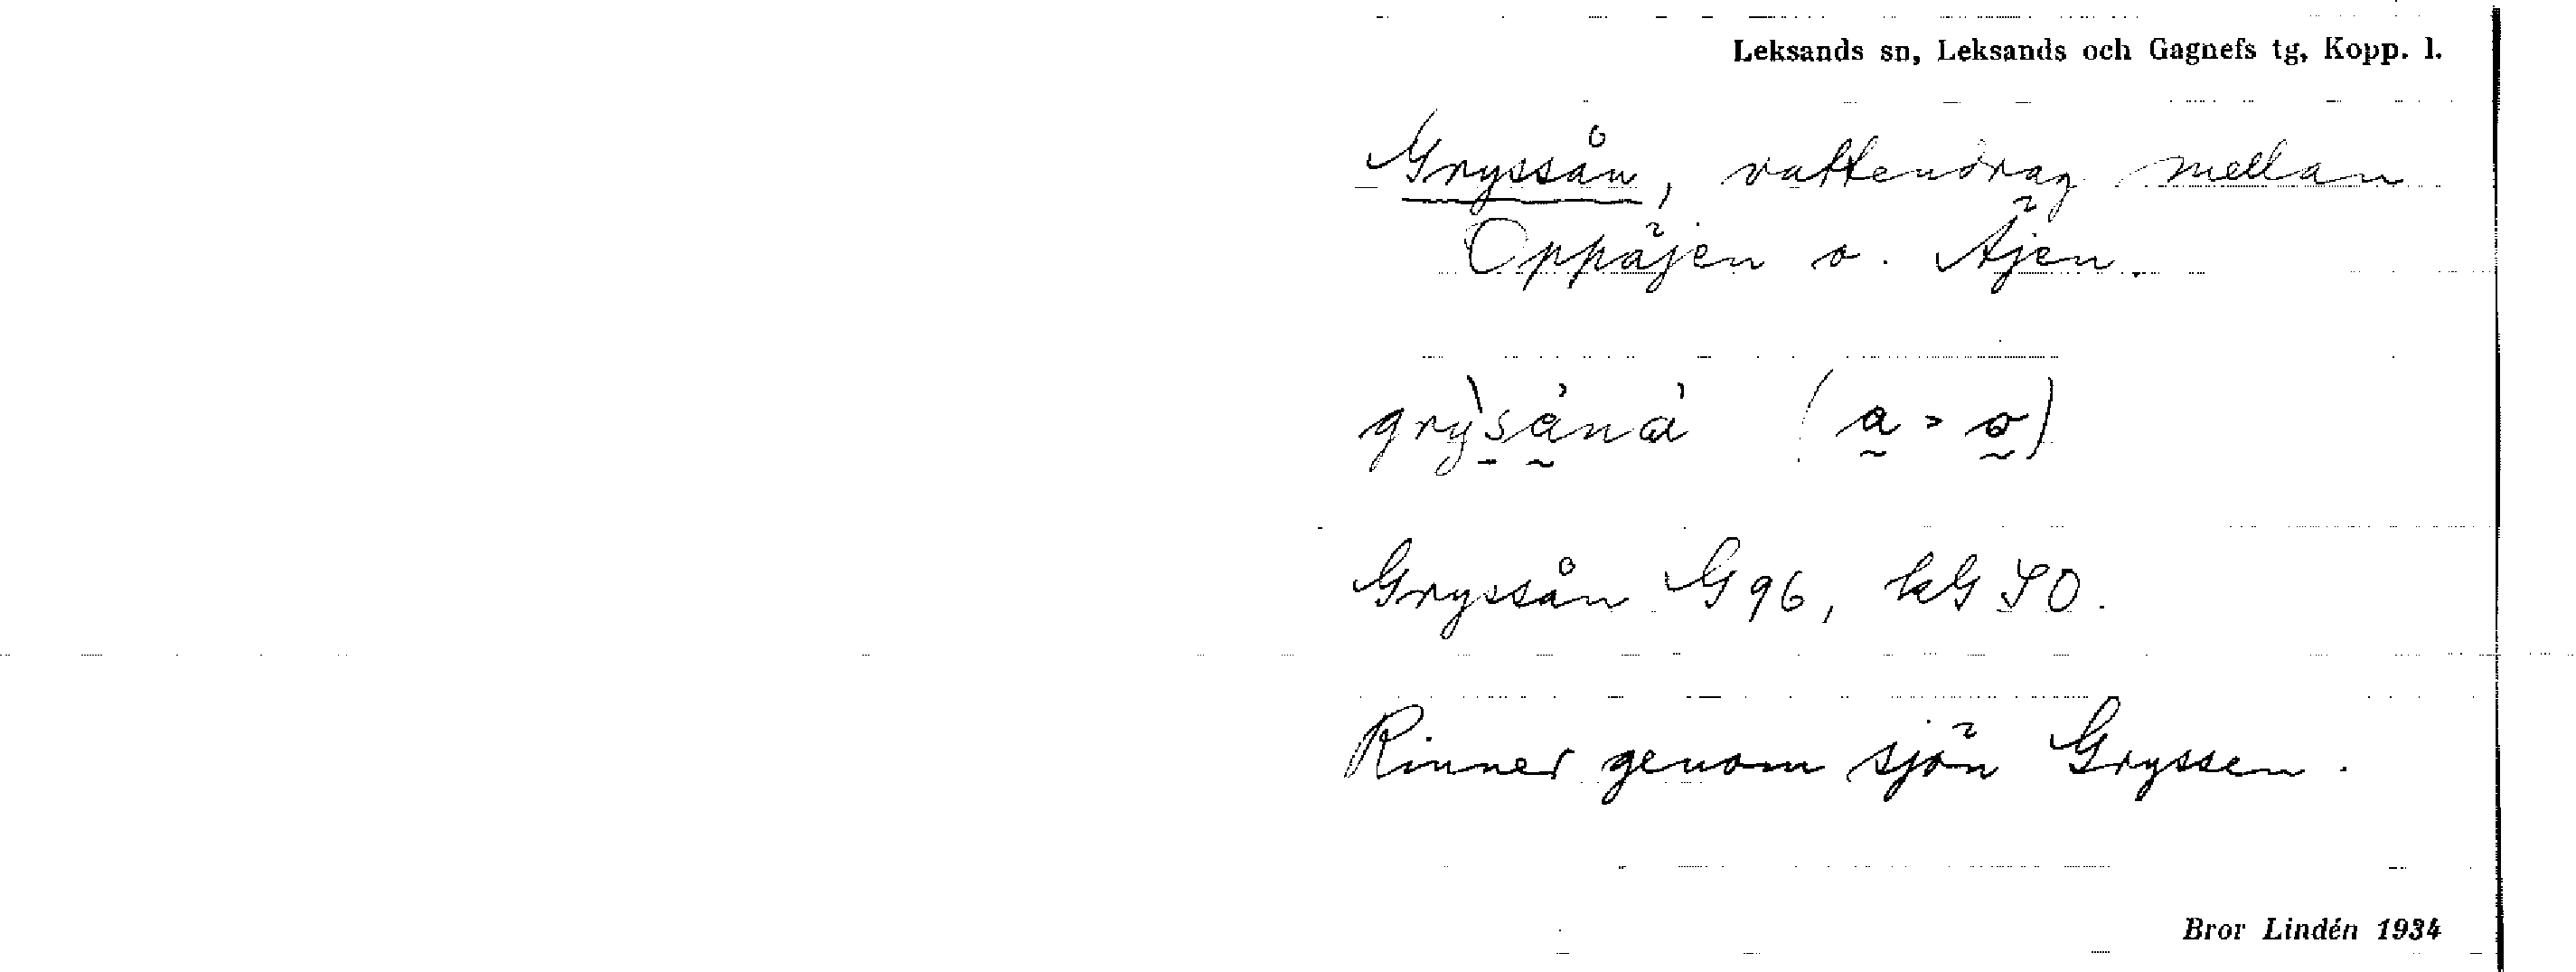 Leksands sn, Leksands och Gagnefs tg, Kopp. l.
Gryssån, vattendrag mellan
Oppåjen o. Åjen.
(a > o)
Gryssån G 96, hG SO.
Rinner genom sjön Gryssen.
Bror Lindén 1934